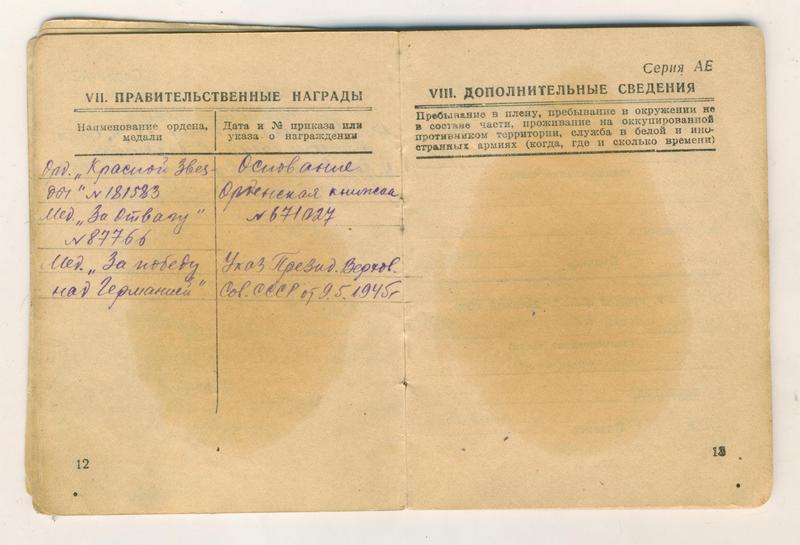 VII. ПРАВИТЕЛЬСТВЕННЫЕ НАГРАДЫ
Наименование ордена, медали
Дата и № приказа или указа о награждении
Орд. „Красной Звез-
ды" № 181583
Мед. „За Отвагу"
№ 87766
Мед. „За победу
над Германией"
Основание
Орденская книжка
№ 671027
Указ Презид. Верхов.
Сов. СССР от 9.5.1945г
12
Серия АЕ
VIII. ДОПОЛНИТЕЛЬНЫЕ СВЕДЕНИЯ
Пребывание в плену, пребывание в окружении не
в составе части, проживание на оккупированной
противником территории, служба в белой и ино-
странных армиях (когда, где и сколько времени)
13